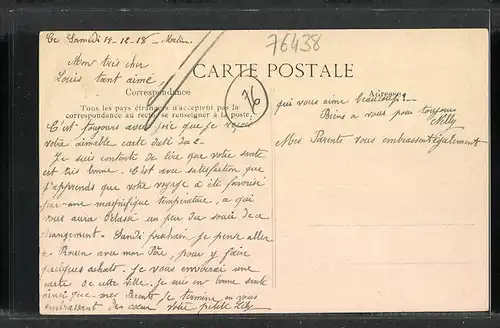 Ce Samedi 14-12-18 - Matin
76438
Mon très cher
Louis tant aimé,
CARTE POSTALE
Correspondance
Adresse
Tous les pays étrangers n'acceptent pas la
correspondance au recto, se renseigner à la poste.
76
C'est toujours avec joie que je reçois
votre aimable carte daté du 2.
Je suis contente de lire que votre santé
est très bonne. C'est avec satisfaction que
j'apprends que votre voyage a été favorisé
par une magnifique température, a qui
vous aura délassé un peu du
changement. Lundi prochain je pense aller
à Rouen avec mon Père, pour y faire
quelques achats. Je vous enverrai une
carte de cette ville. Je suis en bonne santé
ainsi que mes Parents. Je termine en vous
embrassant de cœur votre petite Lily
qui vous aime beaucoup
Biens a vous pour toujours
Mes Parents vous embrassent également